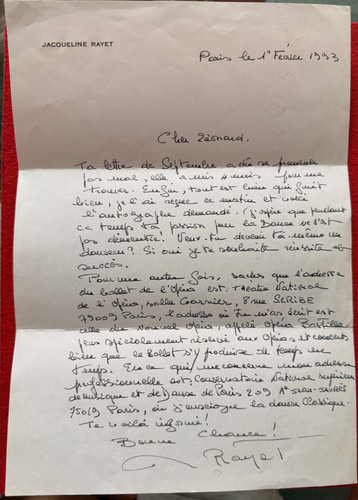 JACQUELINE RAYET
Paris le 1er Février 1993
Cher Léonard.
Ta lettre de Septembre a dû se promener
pas mal, elle a mis 4 mois pour me
trouver. Enfin, tout est bien qui finit
bien, je l'ai reçue ce matin et voici
l'autographe demandé. J'espère que pendant
ce temps ta passion pour la Danse ne s'est
pas démentie. Veux-tu devenir toi-même un
danseur? Si oui je te souhaite réussite et
succès.
Pour une autre fois, saches que l'adresse
du ballet de l'Opéra est. Théâtre National
de l'Opéra, salle Garnier, 8 rue SCRIBE
75009 Paris, l'adresse où tu m'as écrit est
celle du Nouvel Opéra, appelé Opéra Bastille
plus spécialement réservé aux Opéras et concerts
bien que le Ballet s'y produise de temps en
temps. En ce qui me concerne mon adresse
professionnelle est. Conservatoire National supérieur
de musique et de Danse de Paris 209 Av Jean-Jaurès
75019 Paris, où j'enseigne la danse Classique.
Te voilà informé!
Bonne Chance!
Rayet